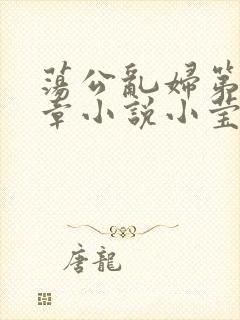 蕩公亂婦第
章小説小瑩
唐龍